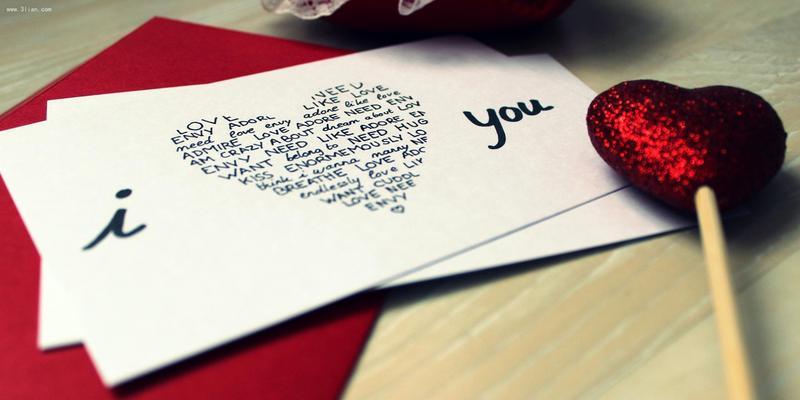 www.3lian.com
i
NEED
LOVE LIKE LOVE
ENVY ADORE adore like love
need love envy LOVE ADORE NEED ENV
ADMIRE LOVE ABOUT dream about LOV
AM CRAZY ABOUT NEED LIKE ADORE EN
ENVY WANT belong to NEED HUG
KISS ENORMEMOUSLY LO
think i wanna marry NO
BREATHE LOVE ADC
endlessly love LIK
WANT CUDDL
LOVE NEE
ENVY
you